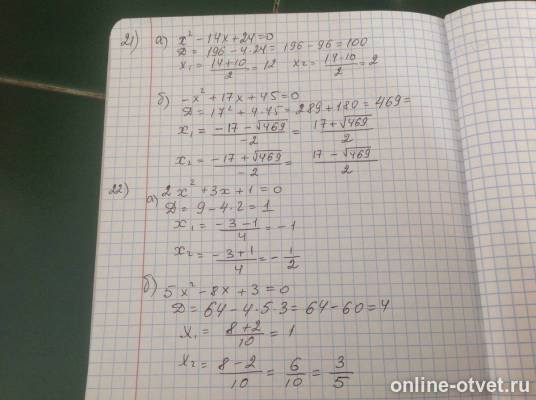 21) а) x² - 14x + 24 = 0
D = 196 - 4·24 = 196 - 96 = 100
x₁ = (14+10)/2 = 12 x₂ = (14-10)/2 = 2
б) -x² + 17x + 45 = 0
D = 17² + 4·45 = 289 + 180 = 469 =
x₁ = (-17 - √469)/-2 = (17 + √469)/2
x₂ = (-17 + √469)/-2 = (17 - √469)/2
22) а) 2x² + 3x + 1 = 0
D = 9 - 4·2 = 1
x₁ = (-3-1)/4 = -1
x₂ = (-3+1)/4 = -1/2
б) 5x² - 8x + 3 = 0
D = 64 - 4·5·3 = 64 - 60 = 4
x₁ = (8+2)/10 = 1
x₂ = (8-2)/10 = 6/10 = 3/5
online-otvet.ru